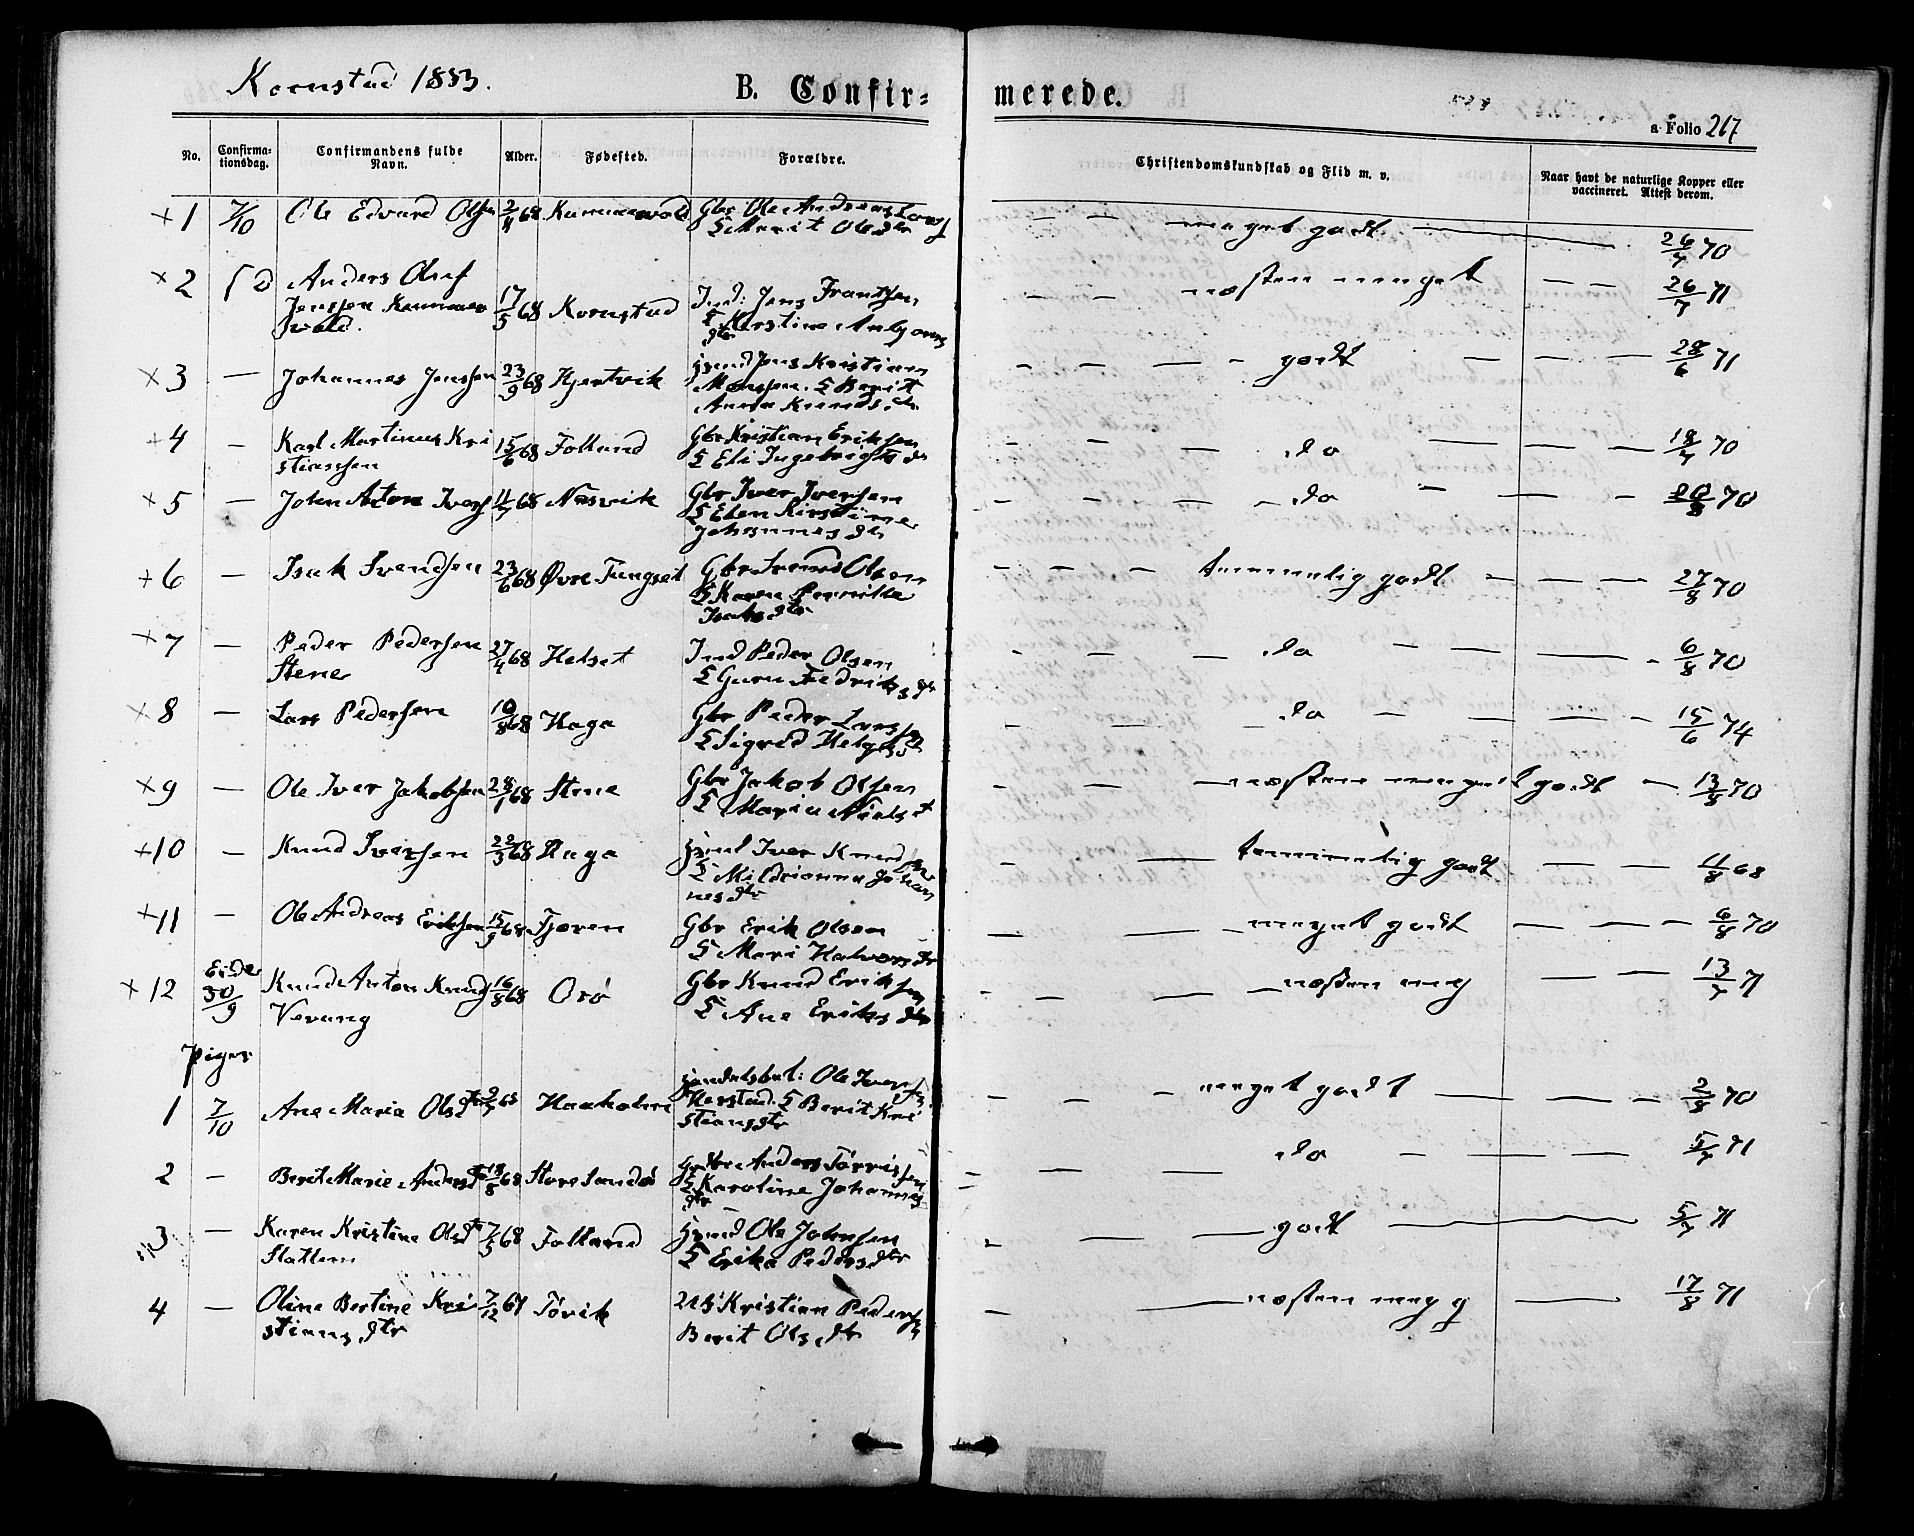 Kornstad 1883.
B. Confir-
merede.
a Folio 217
No.
Confirma-
tionsdag.
Confirmandens fulde
Navn.
Alder.
Fødested.
Forældre.
Christendomskundskab og Flid m. v.
Naar havt de naturlige Kopper eller
vaccineret. Attest derom.
+ 1 7/10 Ole Edvard Olsen 2/4 68 Gbr Ole Andreas Lars
& Marit Olsdtr
— — meget godt — 26/7 70
+ 2 Anders Oluf
Jenssen
17/5 68 Kornstad Ind: Jens Frantsen
& Kirstine
dtr
— — næsten meget — — 26/7 71
× 3 — Johannes Jenssen 23/9 68 Hjertvik Hsmd Jens Kristian
Monssen. & Berit
Anna Knudsdtr
— — — - godt — — — 28/6 71
+ 4 — Karl Martinus Kri
stiansen
15/6 68 Folland Gbr Kristian Eriksen
& Eli Ingebrigts dr
- — — do — — — 18/7 70
+ 5 — Johan Anton Ivers 11/7 68 Næsvik Gbr Iver Iversen
& Elen Kirstine
Johannesdtr
- — — - do — — - 20/8 70
+ 6 — Isak Svendsen 23/6 68 Øvre Tungset Gbr Svend Olsen
& Karen Pernille
Isaksdtr
- — — temmelig godt — — — 27/8 70
+ 7 — Peder Pedersen
Stene
27/4 68 Helset Ind Peder Olsen
& Guru Fredriks dr
- — — do — — — - 6/8 70
× 8 — Lars Pedersen 10/8 68 Haga Gbr Peder Larssen
& Sigrid Helges d
- — — do — — — - 15/6 74
+ 9 — Ole Iver Jakobsen 28/1 68 Stene Gbr Jakob Olsen
& Maria Niels d
- — næsten meget godt — 13/8 70
+10 — Knud Iversen 22/3 68 Haga Hsmd Iver Knudsen
& Mildrianna Johan
nesdtr
- — temmelig godt — — 11/8 68
+11 — Ole Andreas Eriksen 15/9 68 Fjøren Gbr Erik Olsen
& Mari Halvorsdtr
— — meget godt — — - 6/8 70
+ 12 Eide
30/9
Knud Anton Knuds
Vevang
16/8 68 Orø Gbr Knud Eriksen
& Ane Eriksdtr
- - — næsten meg — — 13/7 71
Piger
1 7/10 Ane Maria Olsdtr Haaholmen Handelsbet: Ole Ivers
& Berit Kri
stiansdtr
— - - meget godt — — - 2/8 70
2 — Berit Marie Andersd 18/8 68 Store Sandø Gbr Anders Tørrissen
& Karoline Johannes
dtr
— - — do — — — 5/7 71
3 — Karen Kristine Olsdtr
Slatlem
7/5 68 Folland Hsmd Ole Johnsen
& Erika Pedersdtr
- — — godt — 5/7 71
4 — Oline Bertine Kri
stiansdtr
7/12 67 Tøvik Kristian Peders
Berit Olsdtr
- — næsten meg g — 17/8 71